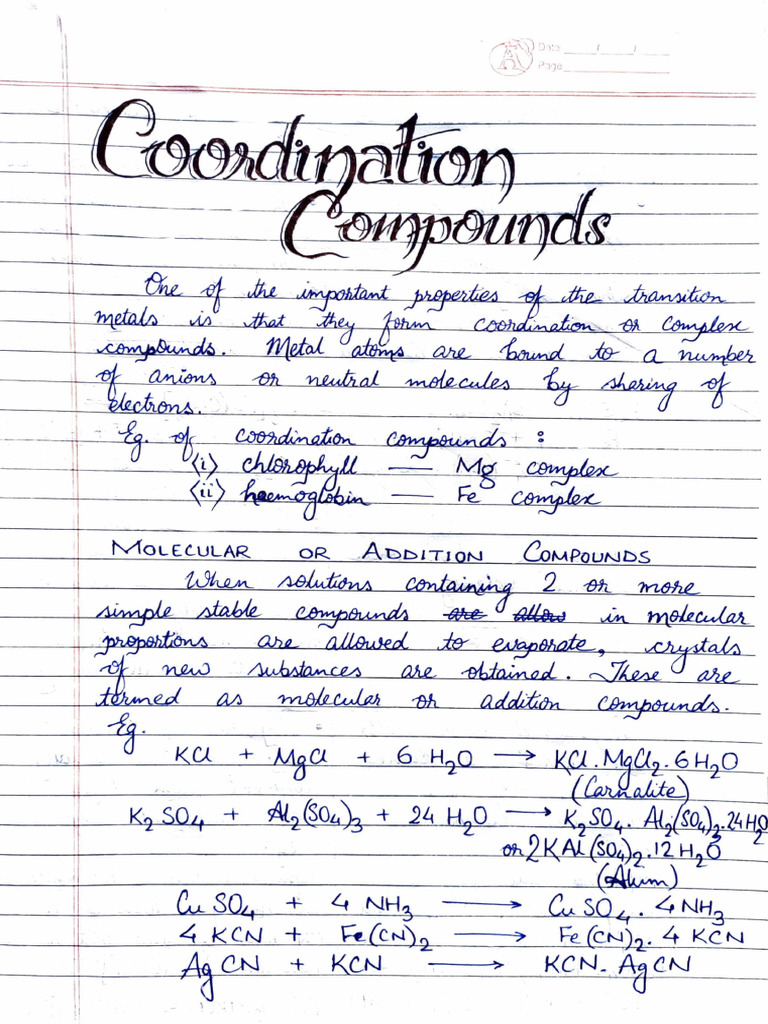 Date ___/___/___
Page ___
Coordination
Compounds
One of the important properties of the transition
metals is that they form coordination or complex
compounds. Metal atoms are bound to a number
of anions or neutral molecules by sharing of
electrons.
Eg. of coordination compounds :
(i) chlorophyll — Mg complex
(ii) haemoglobin — Fe complex
MOLECULAR OR ADDITION COMPOUNDS
When solutions containing 2 or more
simple stable compounds are allow in molecular
proportions are allowed to evaporate, crystals
of new substances are obtained. These are
termed as molecular or addition compounds.
Eg.
KCl + MgCl + 6 H₂O → KCl.MgCl₂.6H₂O
(Carnalite)
K₂SO₄ + Al₂(SO₄)₃ + 24 H₂O → K₂SO₄. Al₂(SO₄)₃.24H₂O
or 2KAl(SO₄)₂.12H₂O
(Alum)
CuSO₄ + 4 NH₃ → CuSO₄.4NH₃
4 KCN + Fe(CN)₂ → Fe(CN)₂.4 KCN
AgCN + KCN → KCN.AgCN